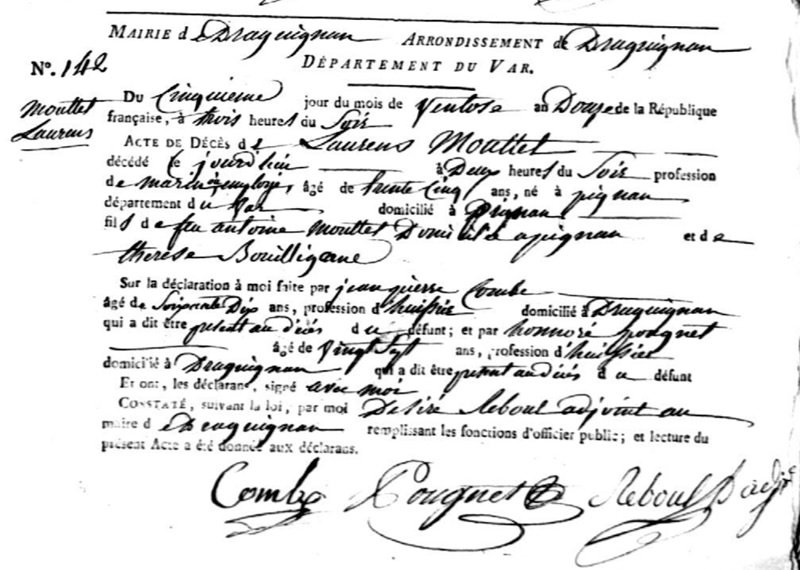 MAIRIE de Draguignan ARRONDISSEMENT de Draguignan
DÉPARTEMENT DU VAR.
N°. 142
Mouttet
Laurens
DU Cinquieme jour du mois de Ventose an Douze de la République
française, à trois heures du Soir
ACTE DE DÉCÈS de Laurens Mouttet
décédé ce jourdhui à Deux heures du Soir profession
de marin âgé de trente Cinq ans, né à pignan
département du Var domicilié à Pignan
fils de feu antoine Mouttet Domicilié a pignan et de
therese Bouilligane
Sur la déclaration à moi faite par jean pierre Combe
âgé de Soixante Dix ans, profession d'huissier domicilié à Draguignan
qui a dit être present au décès du défunt; et par honnoré pougnet
âgé de vingt Sept ans, profession d'huissier
domicilié à Draguignan qui a dit être present au décès du défunt
Et ont, les déclarans, signé avec moi
CONSTATÉ, suivant la loi, par moi Desiré Reboul adjoint au
maire de Draguignan remplissant les fonctions d'officier public; et lecture du
présent Acte a été donnée aux déclarans.
Combe Pougnet Reboul D adj